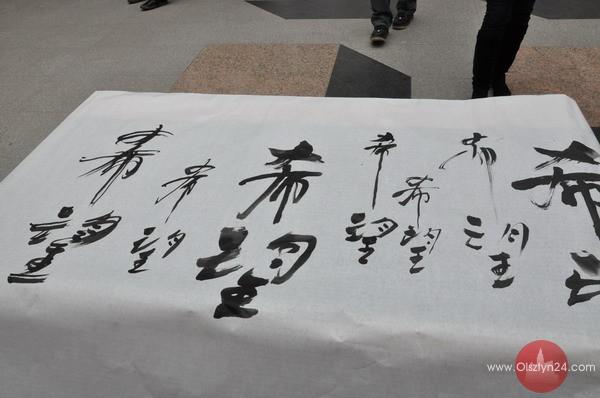 希望
希望
希望
希望
希望
希望
希望
www.Olsztyn24.com